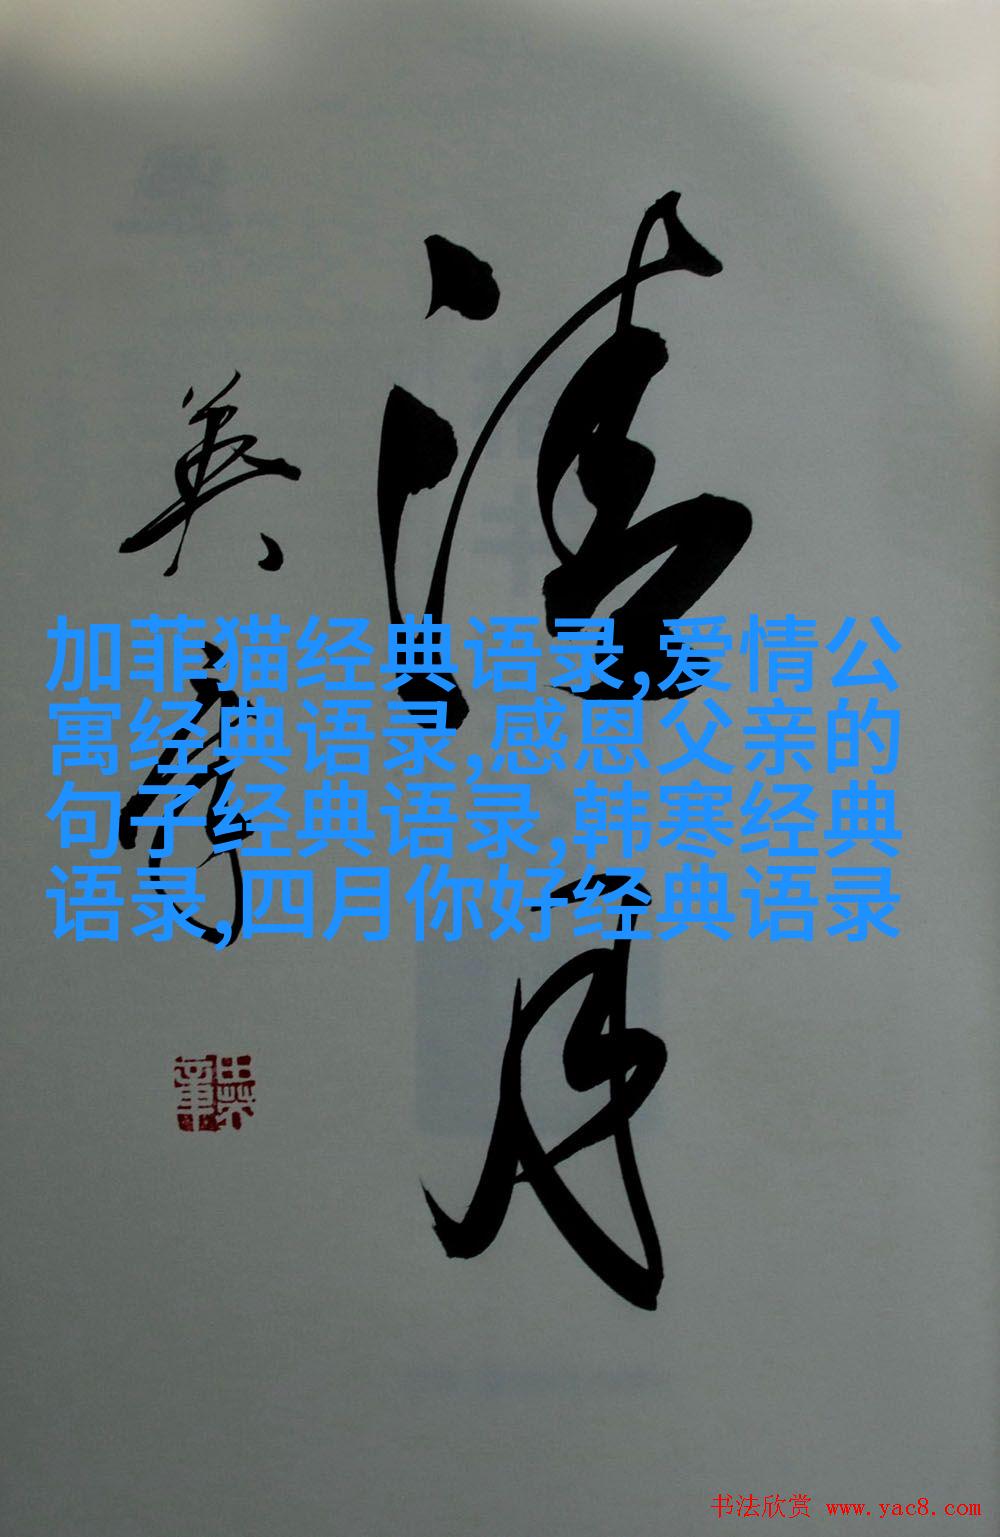 清
风
月
英章
加菲猫经典语录,爱情公
寓经典语录,感恩父亲的
句子经典语录,韩寒经典
语录,四月你好经典语录
书法欣赏 www.yac8.com